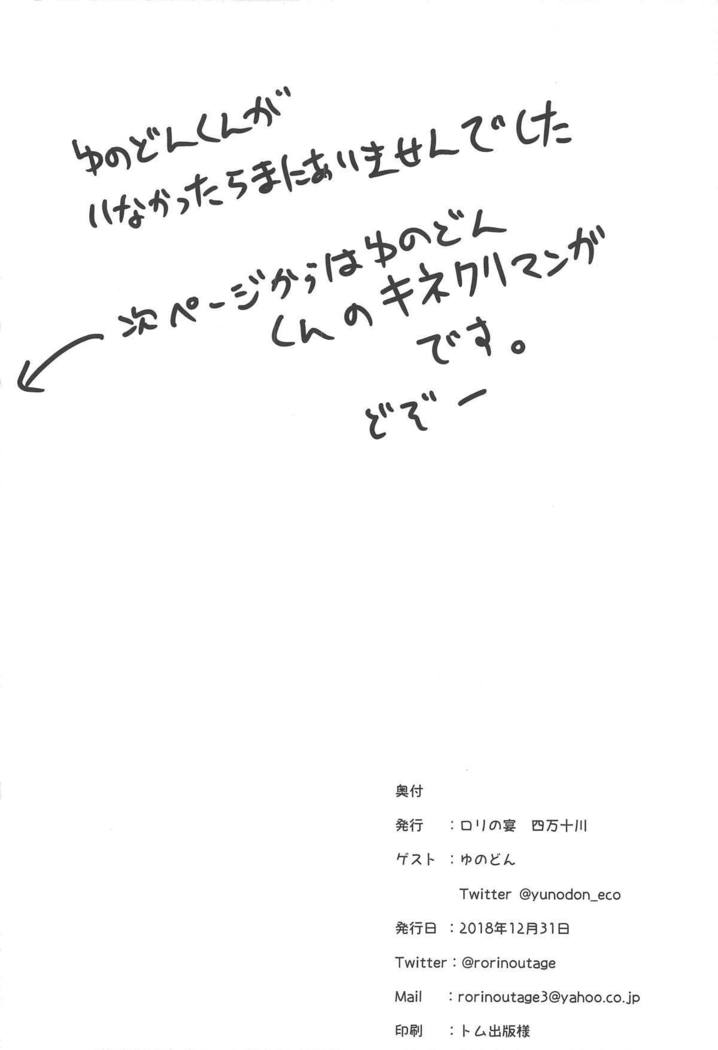 ゆのどんくんが
いなかったらまにあいませんでした
次ページからはゆのどん
くんのキネクリマンガ
です。
どぞー
奥付
発行　：ロリの宴　四万十川
ゲスト：ゆのどん
Twitter @yunodon_eco
発行日：2018年12月31日
Twitter：@rorinoutage
Mail　：rorinoutage3@yahoo.co.jp
印刷　：トム出版様